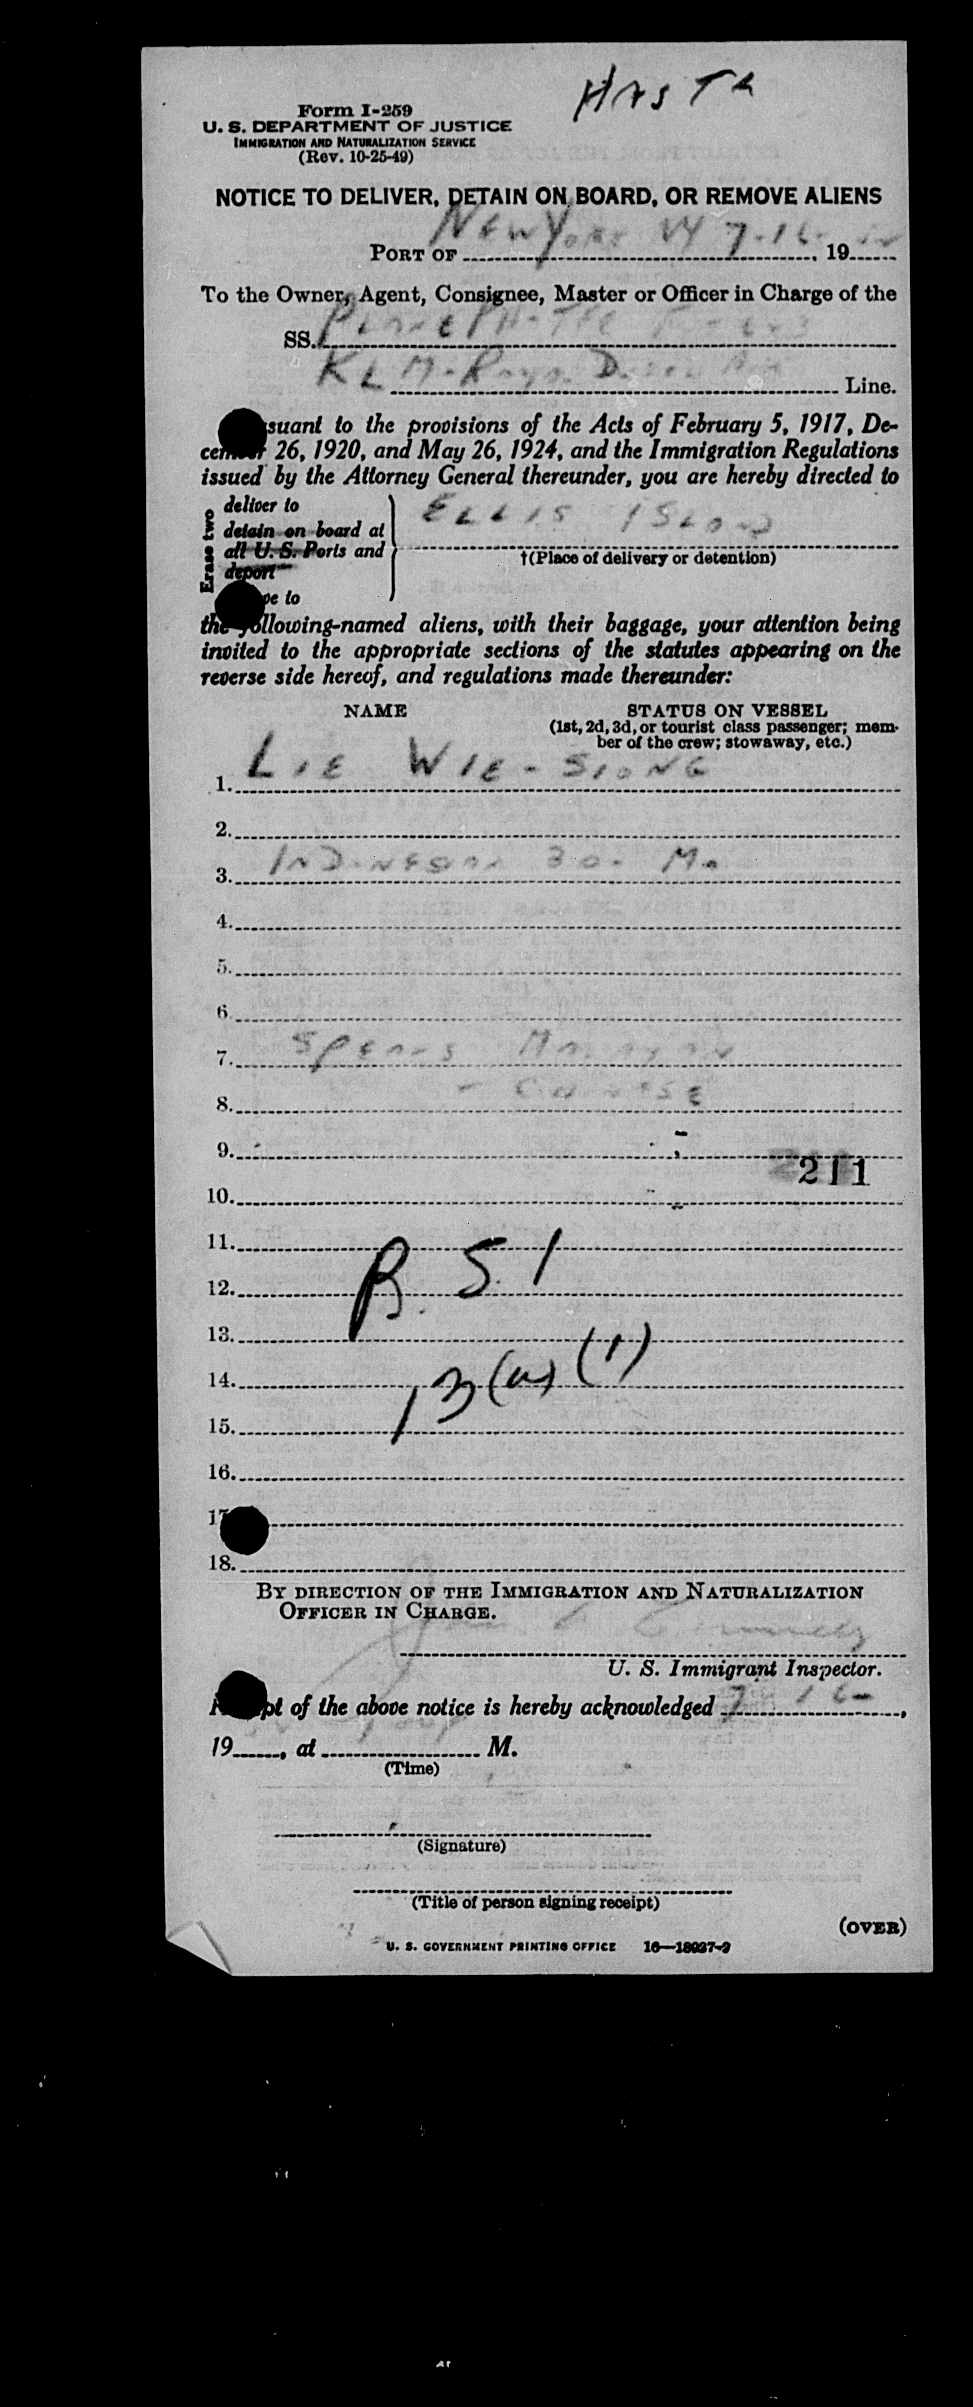 HASTA
Form I-259
U. S. DEPARTMENT OF JUSTICE
IMMIGRATION AND NATURALIZATION SERVICE
(Rev. 10-25-49)
NOTICE TO DELIVER, DETAIN ON BOARD, OR REMOVE ALIENS
NEW YORK NY 7-16-
PORT OF , 19
To the Owner, Agent, Consignee, Master or Officer in Charge of the
SS. PLANE PH-TFE
KLM-Royal Dutch Air Line.
suant to the provisions of the Acts of February 5, 1917, De-
cember 26, 1920, and May 26, 1924, and the Immigration Regulations
issued by the Attorney General thereunder, you are hereby directed to
Erase two
deliver to
detain on board at
all U. S. Ports and
deport
ve to
ELLIS ISLAND
†(Place of delivery or detention)
the following-named aliens, with their baggage, your attention being
invited to the appropriate sections of the statutes appearing on the
reverse side hereof, and regulations made thereunder:
NAME STATUS ON VESSEL
(1st, 2d, 3d, or tourist class passenger; mem-
ber of the crew; stowaway, etc.)
1. LIE WIE-SIONG
2.
3. INDONESIAN 30- M.
4.
5.
6.
7. SPEAKS MALAYAN
8. - CHINESE
9.
211
10.
11.
R. S. 1
12.
13.
14. 13(a)(1)
15.
16.
17
18.
BY DIRECTION OF THE IMMIGRATION AND NATURALIZATION
OFFICER IN CHARGE.
U. S. Immigrant Inspector.
pt of the above notice is hereby acknowledged 7 16-,
19, at M.
(Time)
(Signature)
(Title of person signing receipt)
(OVER)
U. S. GOVERNMENT PRINTING OFFICE 16—18937-2